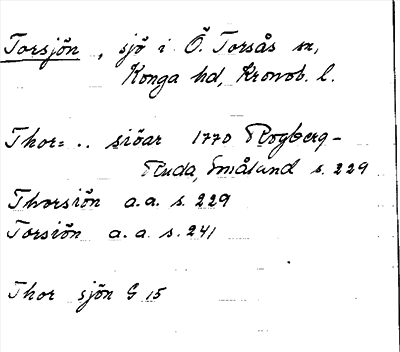 Torsjön, sjö i Ö. Torsås sn,
Konga hd, Kronob. l.
Thor= .. siöar 1770 Rogberg-
Ruda, Småland s. 229
Thorsiön a.a. s. 229
Torsiön a.a. s. 241
Thor sjön G 15